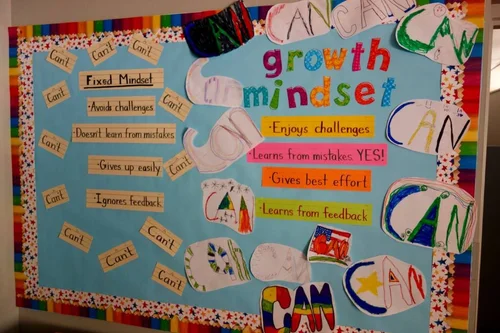 CAN
CAN
CAN
CAN
Can't
Can't
Can't
Can't
Fixed Mindset
growth
mindset
Can't
·Avoids challenges
Can't
·Enjoys challenges
CAN
·Doesn't learn from mistakes
Can't
·Learns from mistakes YES!
CAN
·Gives up easily
Can't
·Gives best effort
Can't
·Ignores feedback
CAN
·Learns from feedback
CAN
Can't
Can't
CAN
CAN
Can't
Can't
CAN
CAN